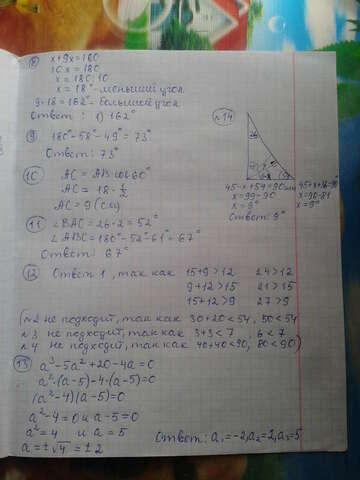 ⑧ x+9x=180
10x=180
x=180:10
x=18°-меньший угол
9·18=162°-больший угол
Ответ: 1) 162°
⑨ 180°-58°-49°=73°
Ответ: 73°
⑩ AC=AB·cos60°
AC=18·½
AC=9 (см)
⑪ ∠BAC=26·2=52°
∠ABC=180°-52°-61°=67°
Ответ: 67°
⑫ Ответ 1, так как 15+9>12 24>12
9+12>15 21>15
15+12>9 27>9
(№2 не подходит, так как 30+20<54, 50<54
№3 не подходит, так как 3+3<7, 6<7
№4 не подходит, так как 40+40<90, 80<90)
⑬ a³-5a²+20-4a=0
a²·(a-5)-4·(a-5)=0
(a²-4)(a-5)=0
a²-4=0 и a-5=0
a²=4 и a=5
a=±√4=±2
Ответ: a₁=-2, a₂=2, a₃=5
№14
45-x+54=90
x=99-90
x=9°
Ответ: 9°
x=90-81
x=9°